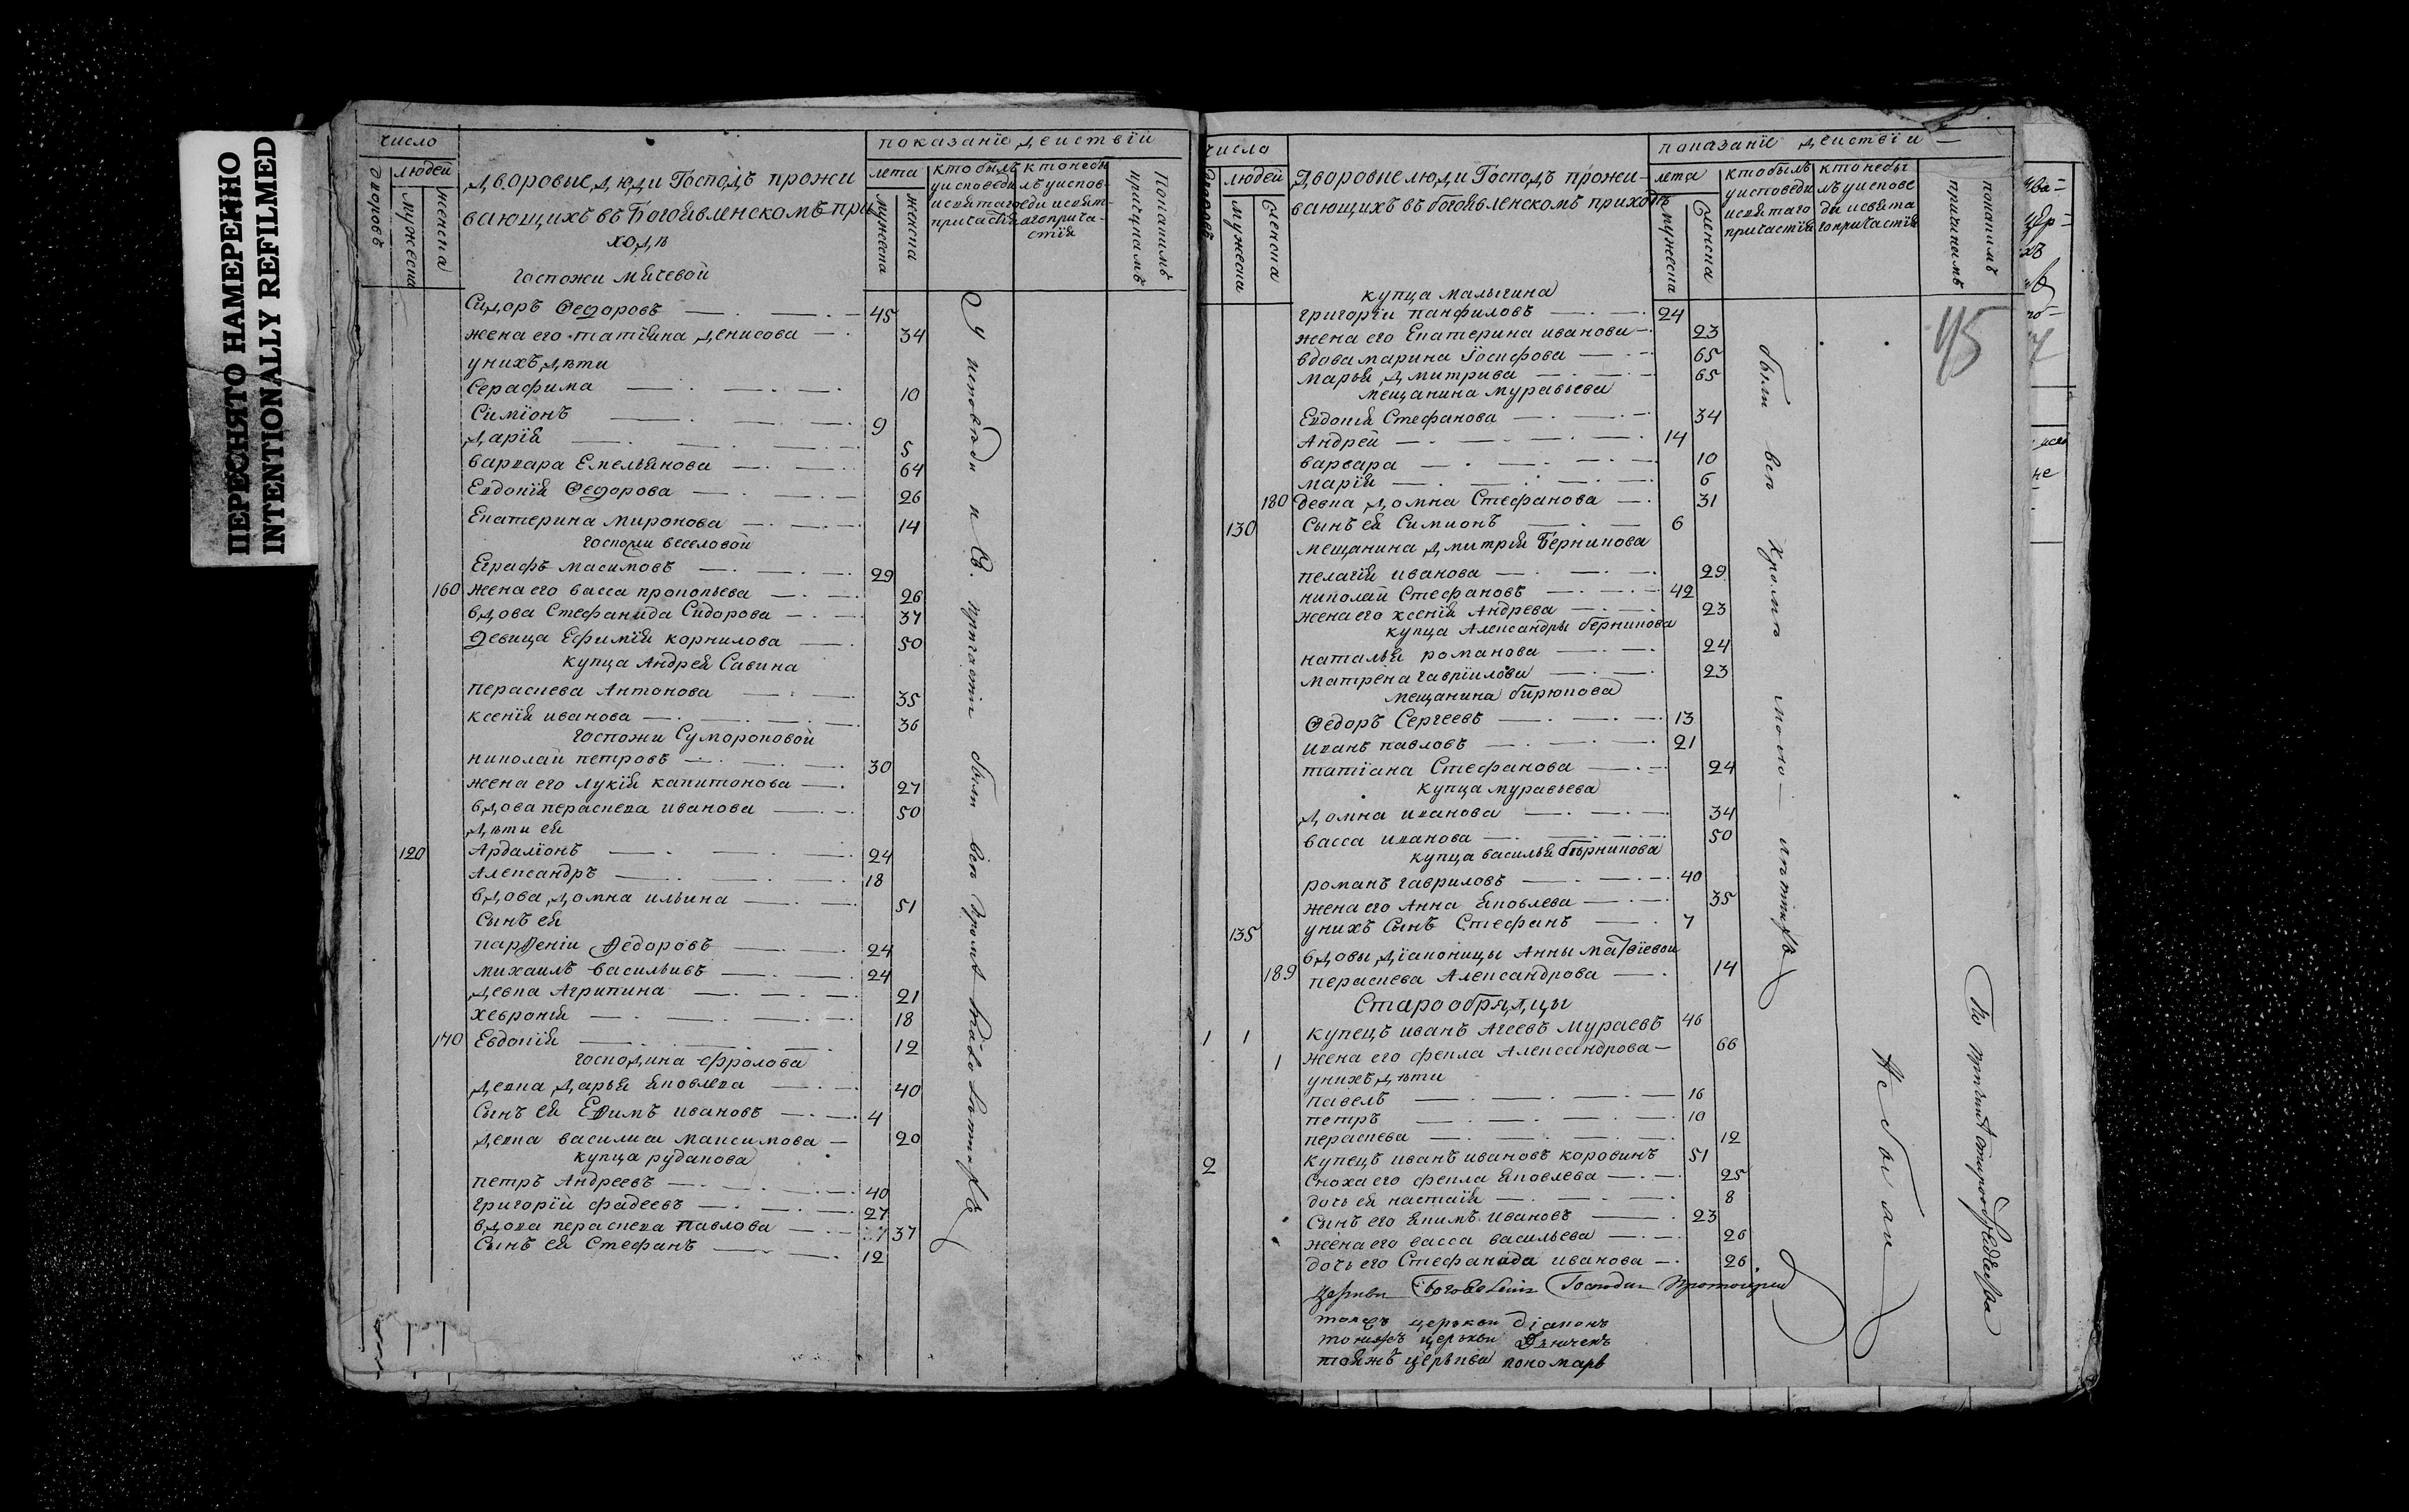 ПЕРЕСНЯТО НАМЕРЕННО
INTENTIONALLY REFILMED
число
показанїе деиствїи
людей
дворовъ
мужеска
женска
дворовые люди Господъ прожи
вающихъ въ Богоявленскомъ при
ходѣ
лета
мужеска
женска
кто былъ
у исповеди
и святаго
причастїя
кто небы
лъ у испов-
еди и свят-
аго прича-
стїя
Покакимъ
причинамъ
Госпожи Мячевой
Сидоръ Ѳедоровъ 45
жена его татїяна денисова 34
у нихъ дѣти
Серафима 10
Симїонъ 9
дарїя 5
варвара Емельянова 64
Евдокїя Ѳедорова 26
Екатерина миронова 14
Госпожи веселовой
Еграфъ масимовъ 29
160 жена его васса прокопьева 26
вдова Стефанида Сидорова 37
девица Ефимїя корнилова 50
купца Андрея Савина
пераскева Антонова 35
ксенїя иванова 36
Госпожи Сумороковой
николай петровъ 30
жена его лукїя капитонова 27
вдова пераскева иванова 50
дѣти ея
120 Ардалїонъ 24
Александръ 18
вдова домна ильина 51
Сынъ ея
парѳенїи Ѳедоровъ 24
михаилъ васильивъ 24
девка Агрипина 21
хевронїя 18
170 Евдокїя 12
Господина Фролова
девка дарья яковлева 40
Сынъ ея Еѳимъ ивановъ 4
девка василиса максимова 20
купца рудакова
петръ Андреевъ 40
григорїй фадеевъ 27
вдова пераскева павлова 37
Сынъ ея Стефанъ 12
У исповѣди и Св. причастїя были всѣ кромѣ
числа
показанїе деиствїи
людей
дворовъ
мужеска
женска
дворовые люди Господъ прожи-
вающихъ въ богоявленскомъ приходѣ
лета
мужеска
женска
кто былъ
у исповеди
и святаго
причастїя
кто небы
лъ у испове
ди и свята
го причастїя
покакимъ
причинемъ
45
купца малыгина
григорїи панфиловъ 24
жена его Екатерина иванова 23
вдова марина Їосифова 65
марья дмитрива 65
мещанина муравьева
Евдокїя Стефанова 34
Андрей 14
варвара 10
марїя 6
180 девка домна Стефанова 31
130 Сынъ ея Симионъ 6
мещанина дмитрїя берникова
пелагїя иванова 29
николай Стефановъ 42
жена его ксенїя Андрева 23
купца Александры берникова
наталья романова 24
матрена гаврїилова 23
мещанина бирюкова
Ѳедоръ Сергеевъ 13
иванъ павловъ 21
татїана Стефанова 24
купца муравьева
домна иванова 34
васса иванова 50
купца василья берникова
романъ гавриловъ 40
жена его Анна яковлева 35
135 у нихъ Сынъ Стефанъ 7
вдовы дїаконицы Анны матвїевой
189 пераскева Александрова 14
Старообрядцы
1 1 купецъ иванъ Агеевъ мураевъ 46
1 жена его фекла Александрова 66
у нихъ дѣти
павелъ 16
петръ 10
пераскева 12
2 купецъ иванъ ивановъ коровинъ 51
Сноха его фекла яковлева 25
дочь ея настаїя 8
Сынъ его якимъ ивановъ 23
жена его васса васильева 26
дочь его Стефанида иванова 26
были всѣ кромѣ
Не были
По причинѣ старообрядства
Церкви Богоявленія Господня Протоіерей
тояжъ церькви дїаконъ
тояжъ церькви дьячекъ
тояжъ церькви пономарь